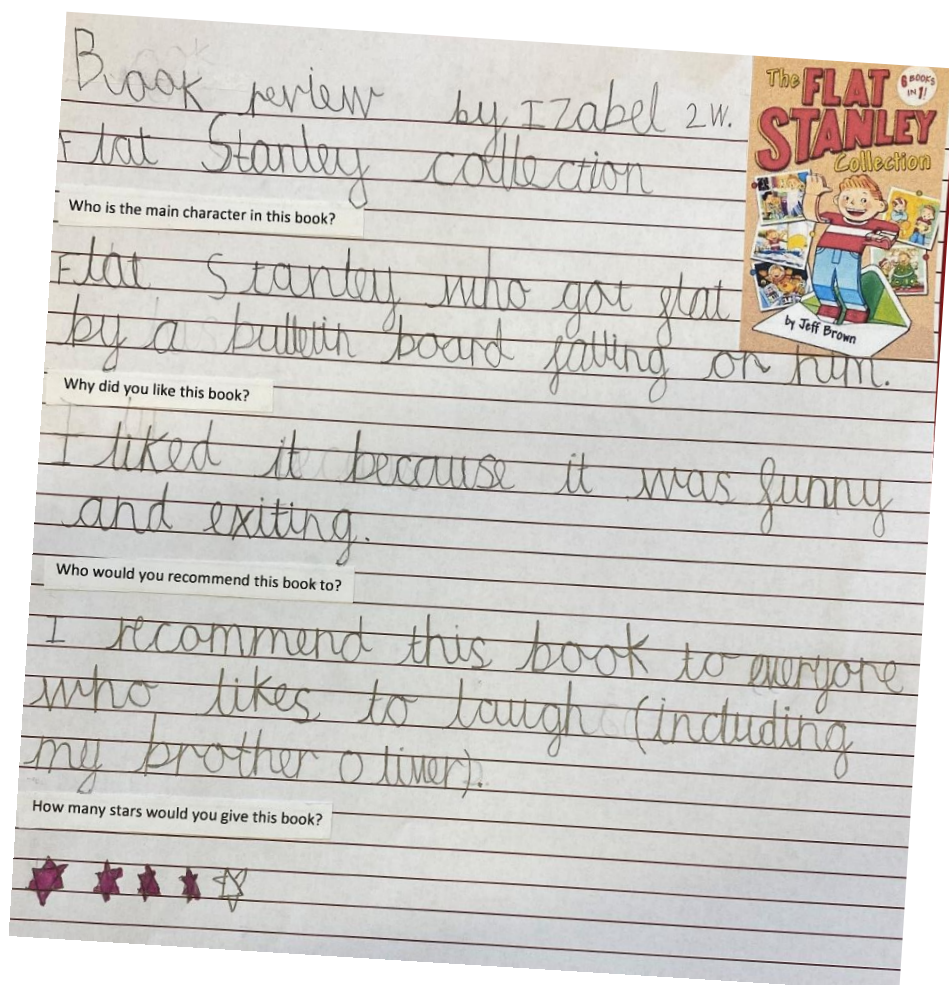 Book review by Izabel 2W.
Flat Stanley collection
The FLAT
STANLEY
Collection
6 BOOKS
IN 1!
by Jeff Brown
Who is the main character in this book?
Flat Stanley who got flat
by a bulletin board falling on him.
Why did you like this book?
I liked it because it was funny
and exiting.
Who would you recommend this book to?
I recommend this book to everyone
who likes to laugh (including
my brother Oliver).
How many stars would you give this book?